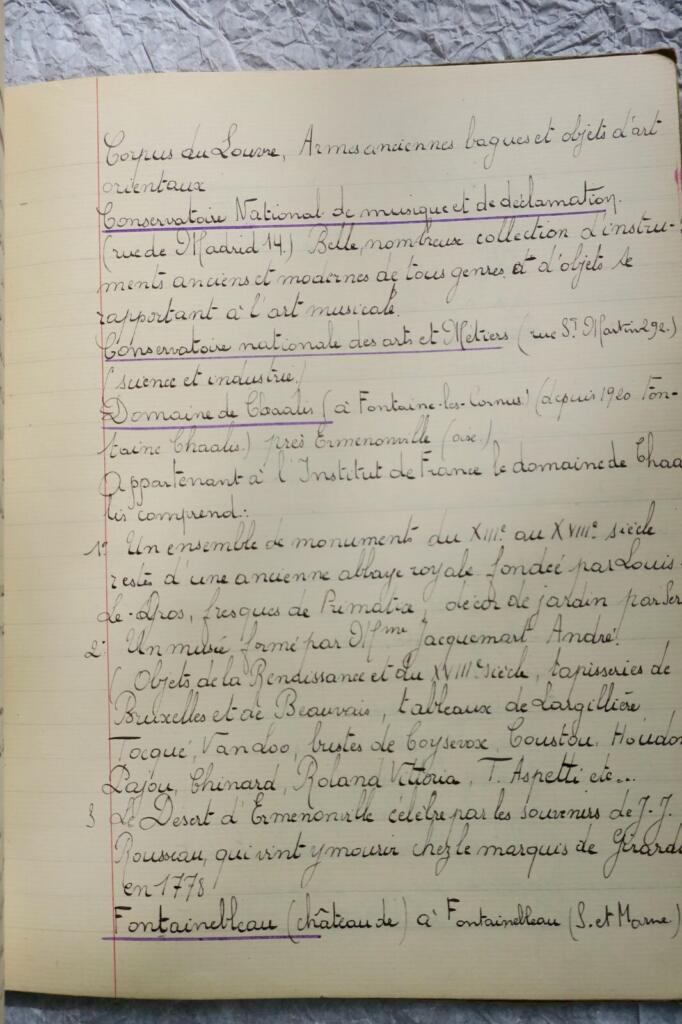 Corpus du Louvre, Armes anciennes bagues et objets d'art
orientaux
Conservatoire National de musique et de déclamation.
(rue de Madrid 14.) Belle, nombreuse collection d'instru-
ments anciens et modernes de tous genres et d'objets se
rapportant à l'art musicale.
Conservatoire nationale des arts et Métiers (rue St Martin 292.)
(science et industrie.)
Domaine de Chaalis (à Fontaine-les-Cornus) (depuis 1920 Fon-
taine Chaalis.) près Ermenonville (oise.)
Appartenant à l'Institut de France le domaine de Chaa
lis comprend:
1º Un ensemble de monuments du XIIIe au XVIIIe siècle
restes d'une ancienne abbaye royale fondée par Louis-
Le-Gros, fresques de Primatice, décor de jardin par Ser
2º Un musée formé par Mme Jacquemart André.
(Objets de la Renaissance et du XVIIIe siècle, tapisseries de
Bruxelles et de Beauvais, tableaux de Largillière
Tocqué, Van Loo, bustes de Coysevox, Coustou, Houdon
Pajou, Chinard, Roland Vittoria, T. Aspetti etc...
3 Le Désert d'Ermenonville célèbre par les souvenirs de J.-J.
Rousseau, qui vint y mourir chez le marquis de Girardi
en 1778
Fontainebleau (château de) à Fontainebleau (S. et Marne)